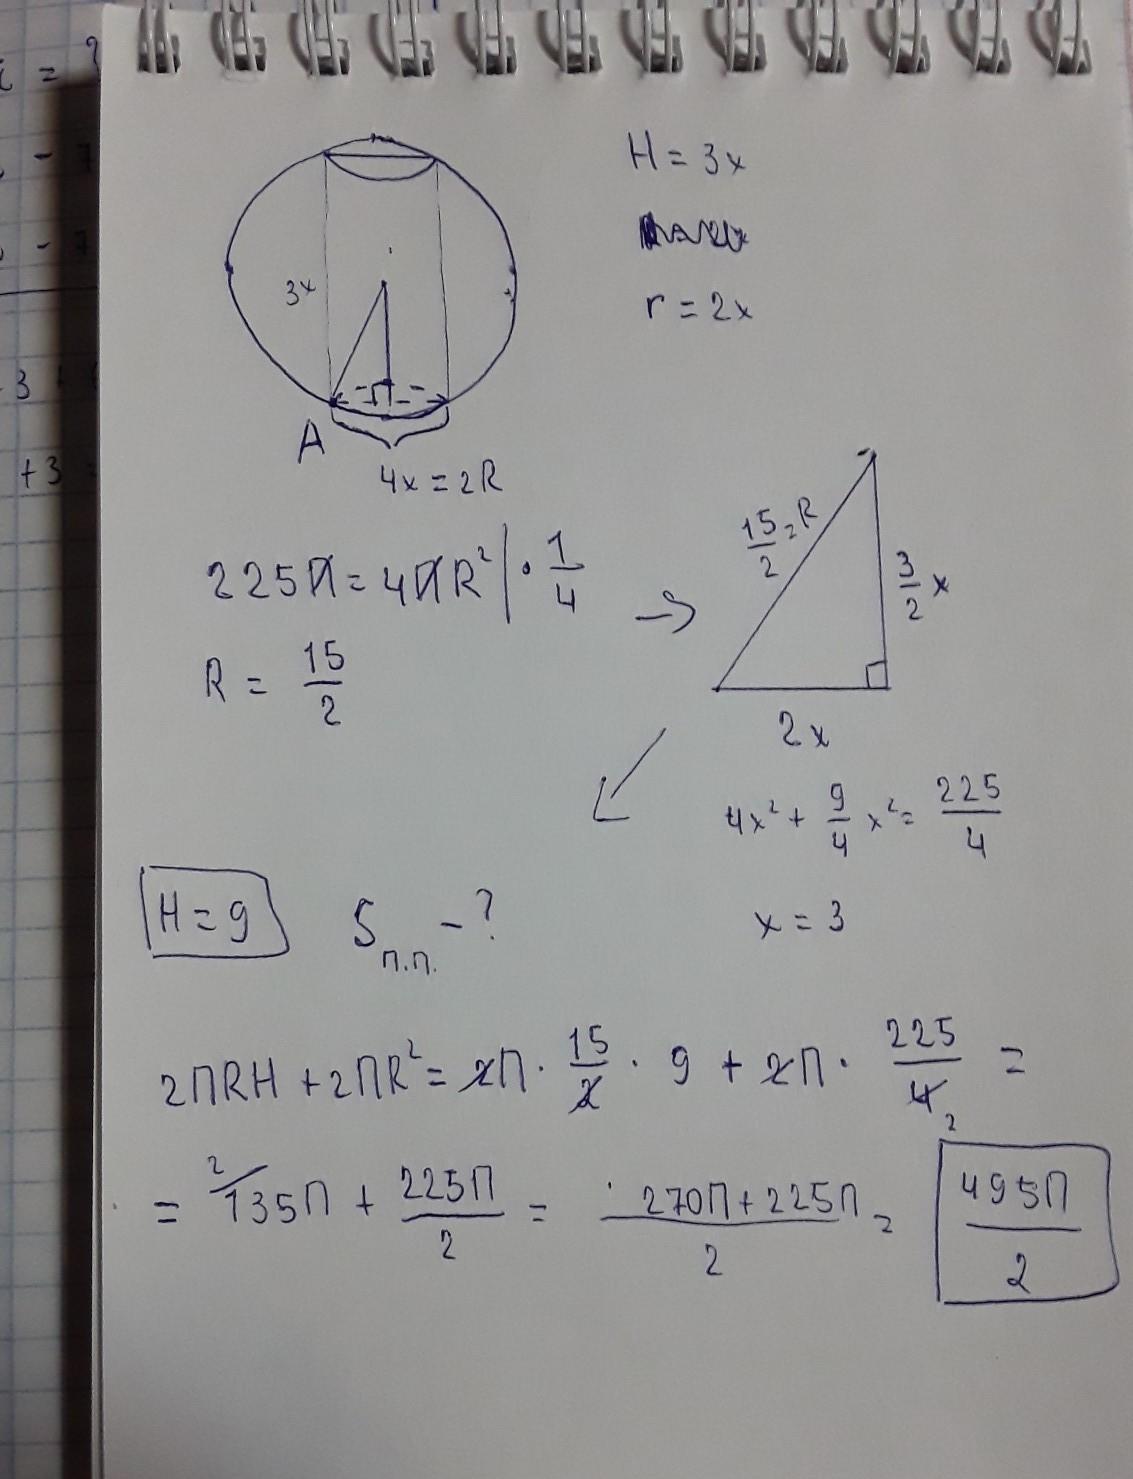 H = 3x
r = 2x
3x
A
4x = 2R
225П = 4ПR² | · 1/4
R = 15/2
15/2 = R
3/2 x
2x
4x² + 9/4 x² = 225/4
x = 3
H = 9
S п.п. - ?
2ПRH + 2ПR² = 2П · 15/2 · 9 + 2П · 225/4 2 =
= 2/ 135П + 225П/2 = 270П + 225П/2 = 495П/2
- 7
- 7
+3